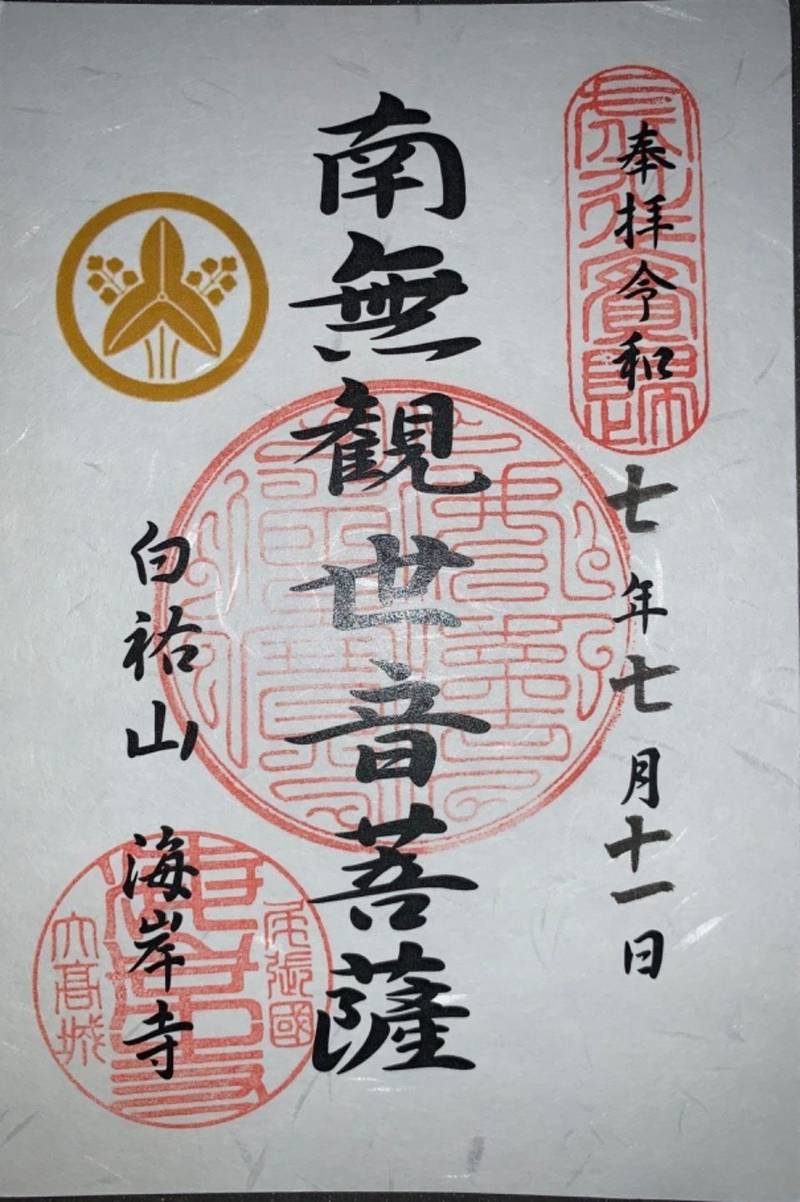 奉拝令和七年七月十一日
南無観世音菩薩
白祐山 海岸寺
尾張國
大高城